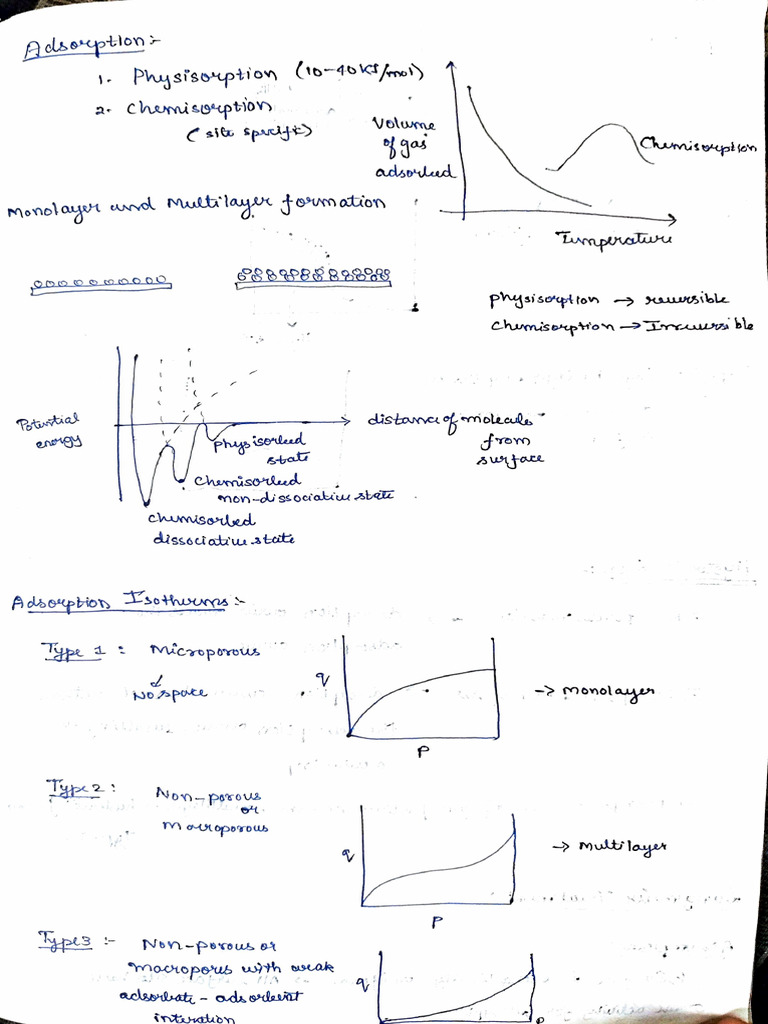 Adsorption :-
1. Physisorption (10-40 KJ/mol)
2. Chemisorption
(site specific)
Volume
of gas
adsorbed
Chemisorption
Temperature
Monolayer and Multilayer formation
physisorption → reversible
Chemisorption → Irreversible
Potential
energy
distance of molecule
from
surface
physisorbed
state
chemisorbed
non-dissociative state
chemisorbed
dissociative state
Adsorption Isotherms :-
Type 1 : Microporous
No space
q
P
→ monolayer
Type 2 : Non-porous
or
Macroporous
q
P
→ multilayer
Type 3 :- Non-porous or
macroporus with weak
adsorbate - adsorbent
interation
q
P